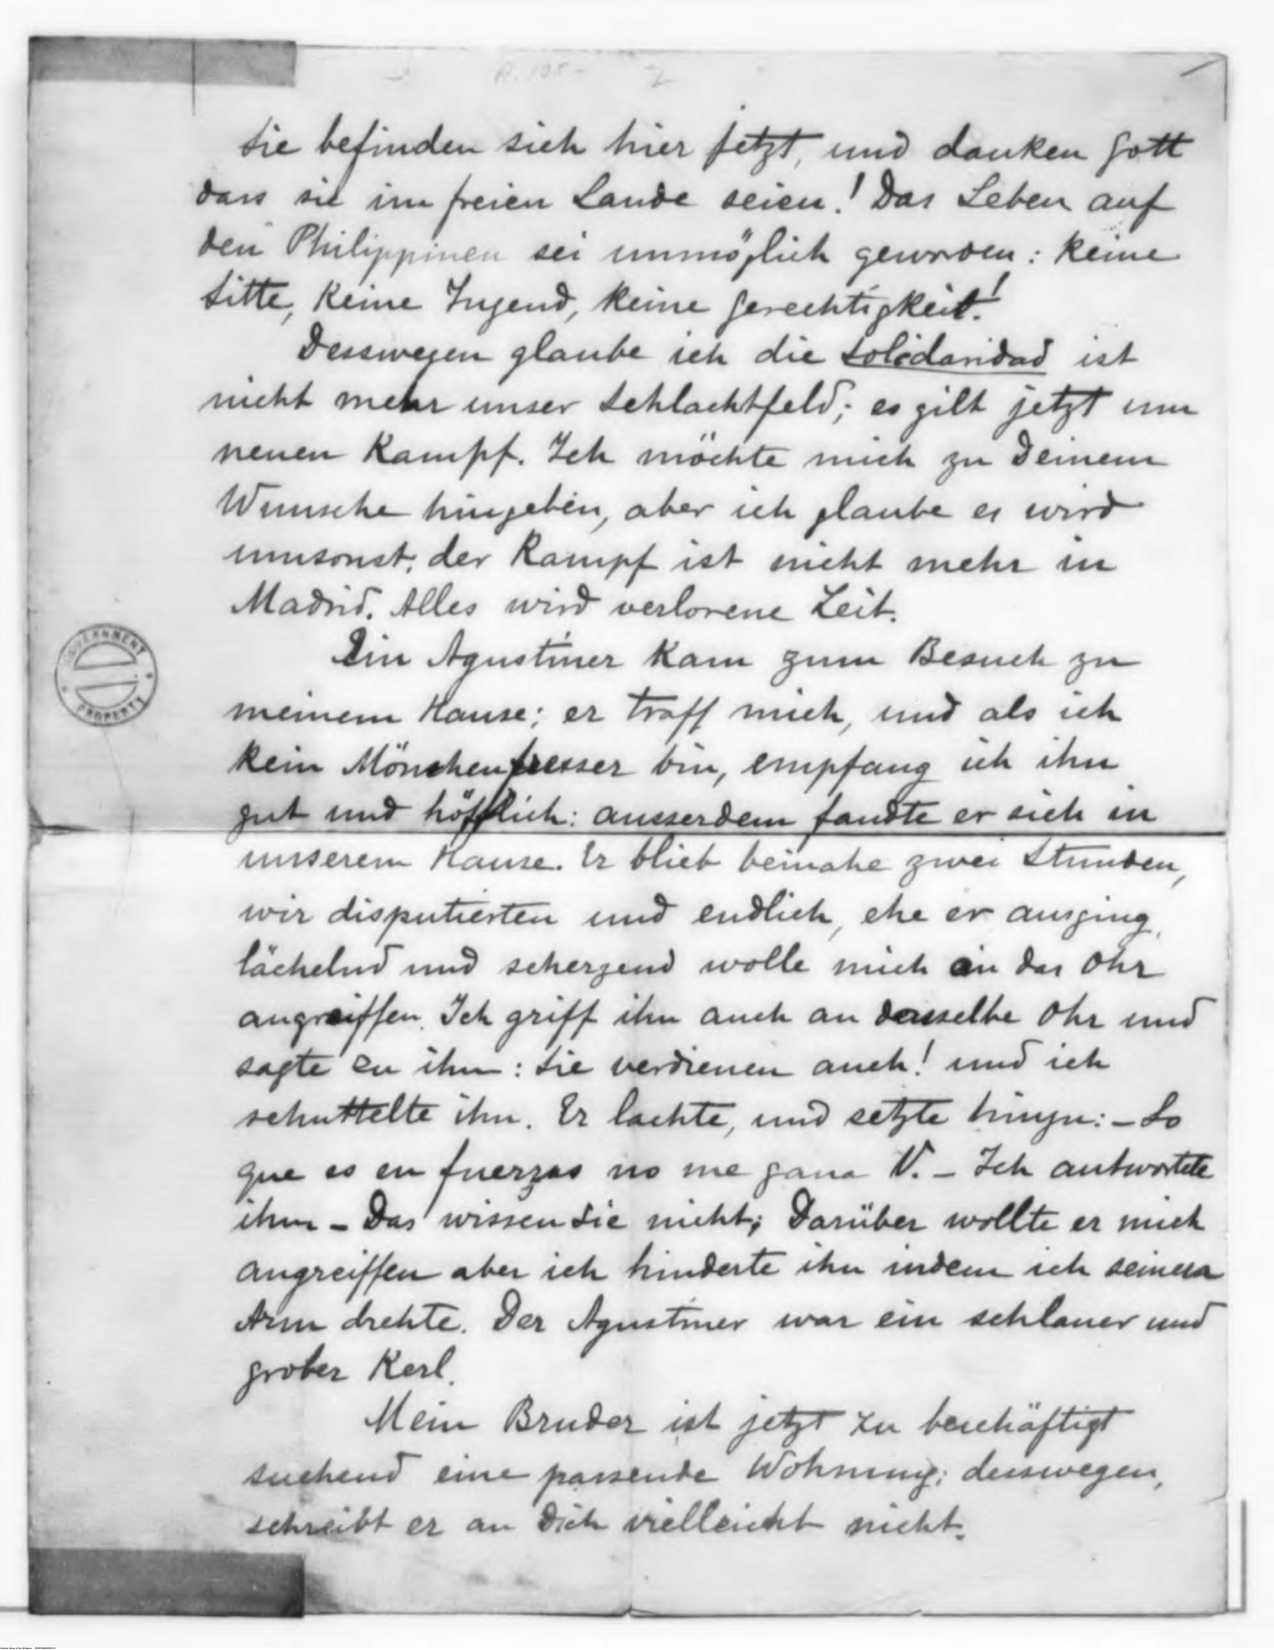 R. 105- 2
Sie befinden sich hier jetzt, und danken Gott
dass sie im freien Lande seien! Das Leben auf
den Philippinen sei unmöglich geworden: keine
Sitte, keine Tugend, keine Gerechtigkeit!
Desswegen glaube ich die Solidaridad ist
nicht mehr unser Schlachtfeld; es gilt jetzt um
neuen Kampf. Ich möchte mich zu Deinem
Wunsche hingeben, aber ich glaube es wird
umsonst: der Kampf ist nicht mehr in
Madrid. Alles wird verlorene Zeit.
Ein Agustiner kam zum Besuch zu
meinem Hause; er traff mich, und als ich
kein Mönchenfresser bin, empfang ich ihn
gut und höfflich: ausserdem fandte er sich in
unserem Hause. Er blieb beinahe zwei Stunden,
wir disputierten und endlich, ehe er ausging,
lächelnd und scherzend wolle mich an das Ohr
angreiffen. Ich griff ihn auch an dasselbe Ohr und
sagte zu ihm: Sie verdienen auch! und ich
schuttelte ihn. Er lachte, und setzte hinzu: - Lo
que es en fuerzas no me gana V. - Ich antwortete
ihm - Das wissen Sie nicht; Darüber wollte er mich
angreiffen aber ich hinderte ihn indem ich seinen
Arm drehte. Der Agustiner war ein schlauer und
grober Kerl.
Mein Bruder ist jetzt zu beschäftigt
suchend eine passende Wohnung; desswegen,
schreibt er an Dich vielleicht nicht.
GOVERNMENT
PROPERTY